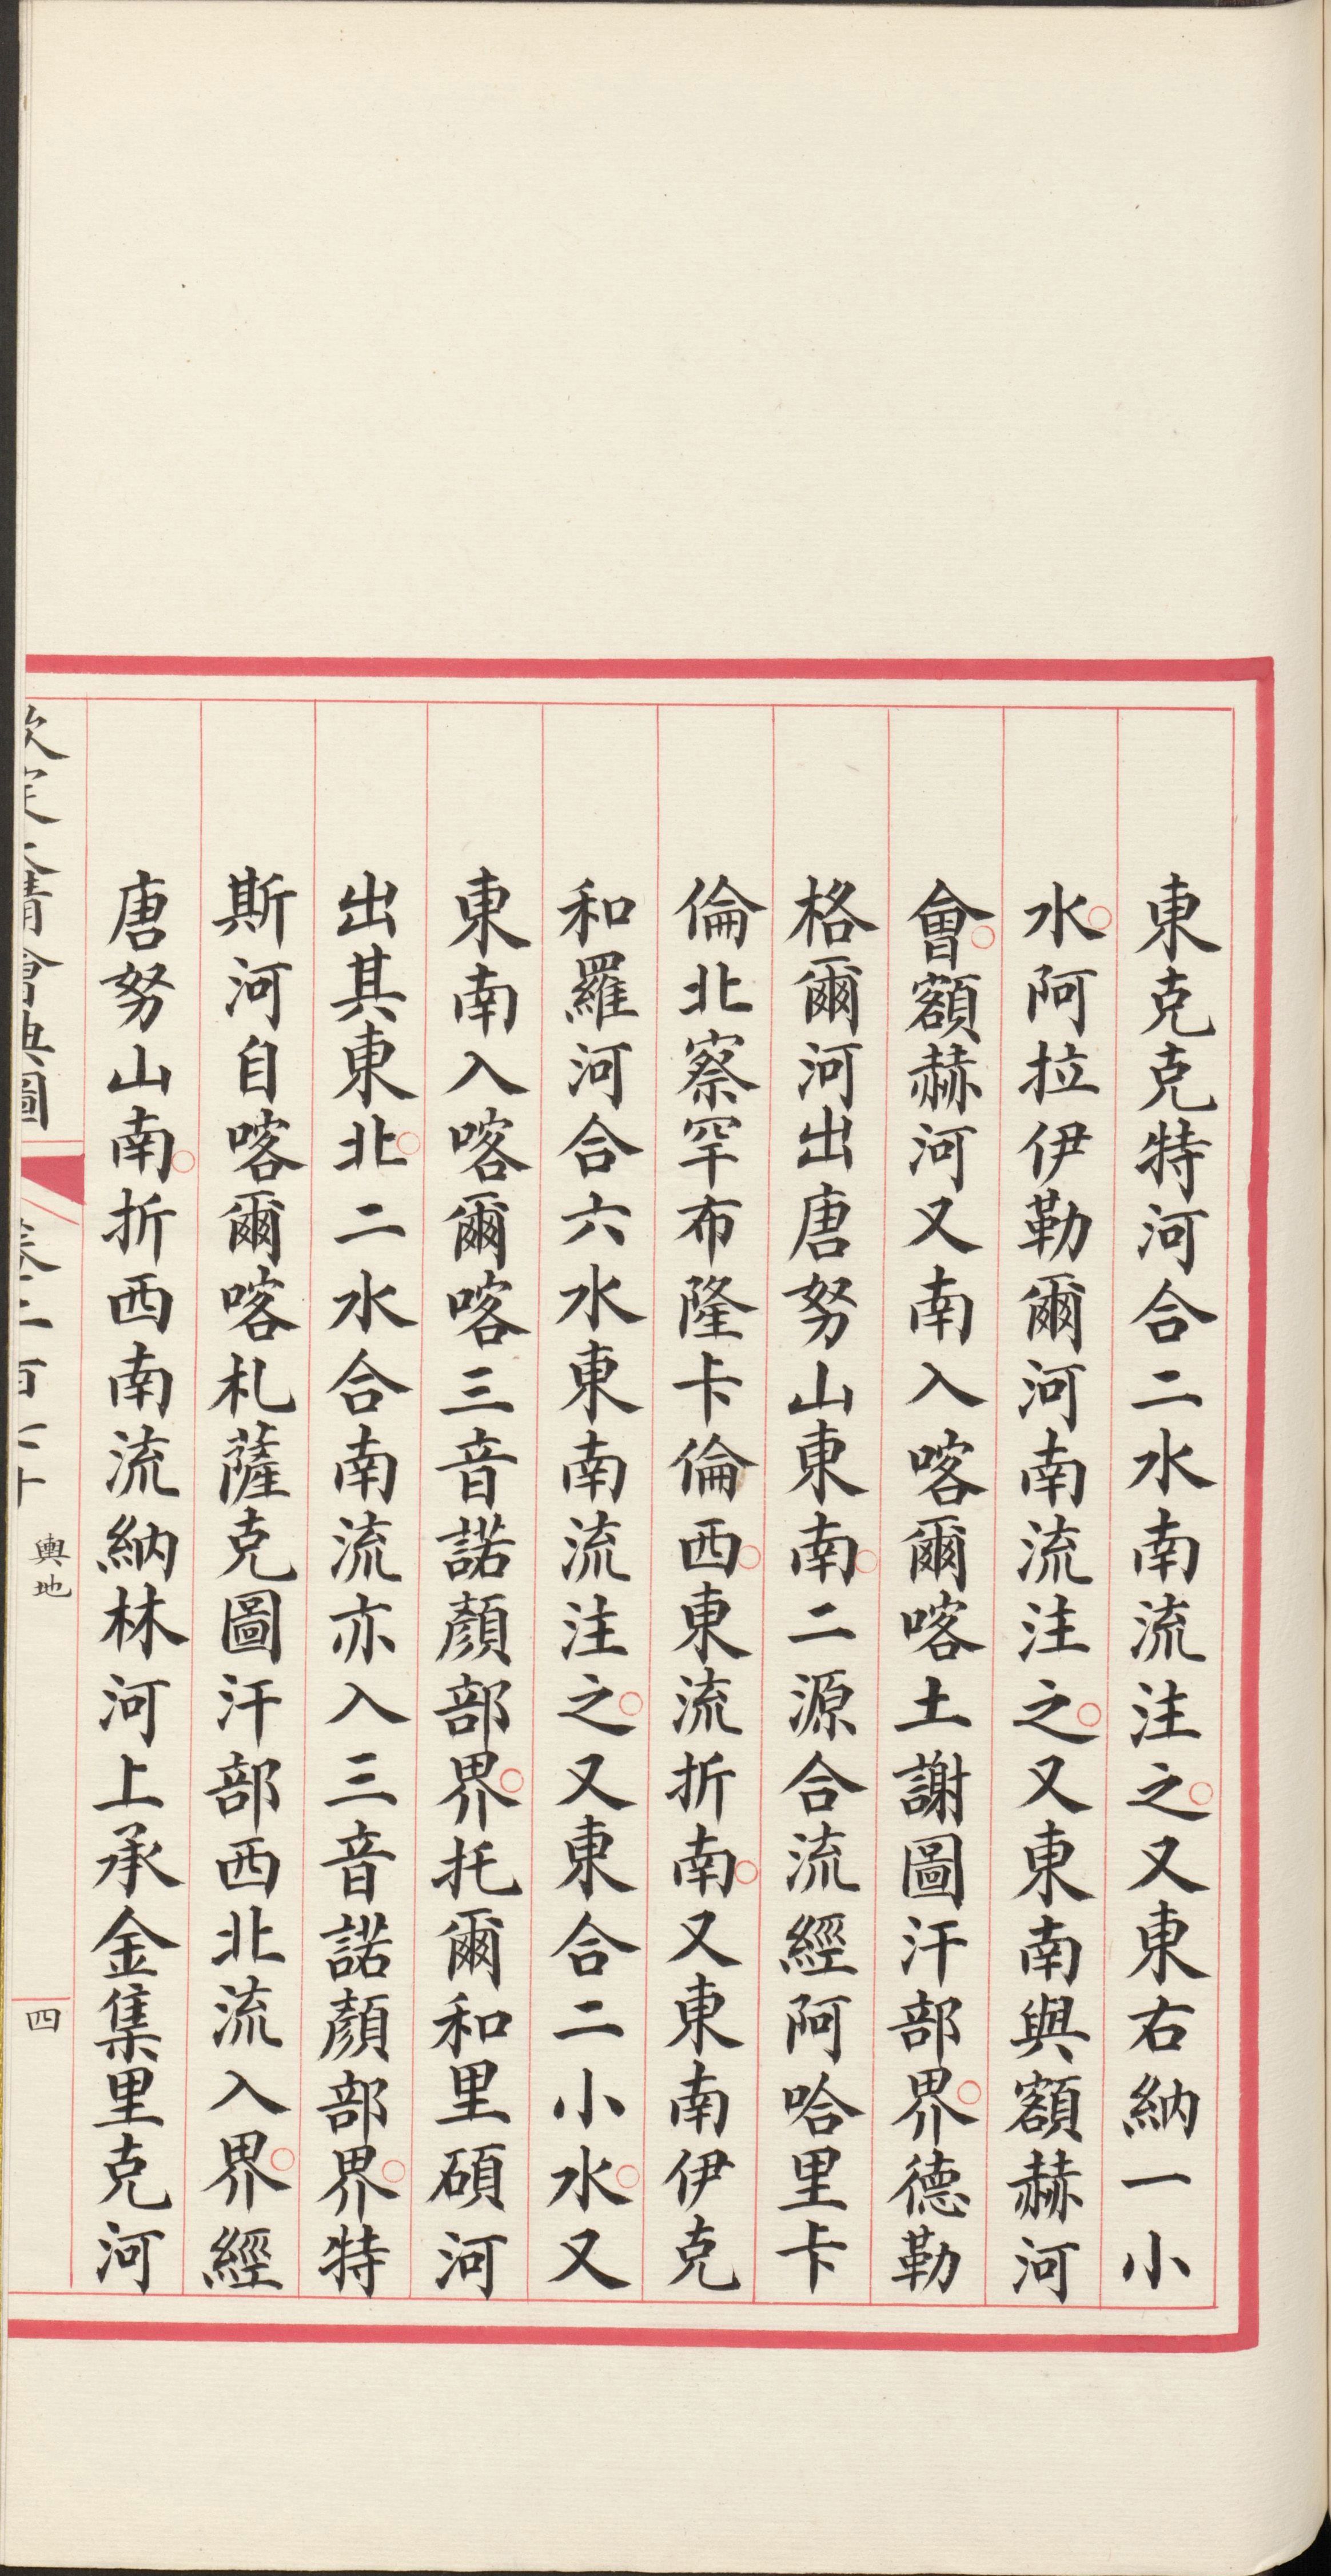 東克克特河合二水南流注之○又東右納一小
水○阿拉伊勒爾河南流注之○又東南與額赫河
會○額赫河又南入喀爾喀土謝圖汗部界○德勒
格爾河出唐努山東南○二源合流經阿哈里卡
倫北察罕布隆卡倫西○東流折南○又東南伊克
和羅河合六水東南流注之○又東合二小水○又
東南入喀爾喀三音諾顏部界○托爾和里碩河
出其東北○二水合南流亦入三音諾顏部界○特
斯河自喀爾喀札薩克圖汗部西北流入界○經
唐努山南○折西南流納林河上承金集里克河
欽定大清會典圖
卷二百七十
輿地
四